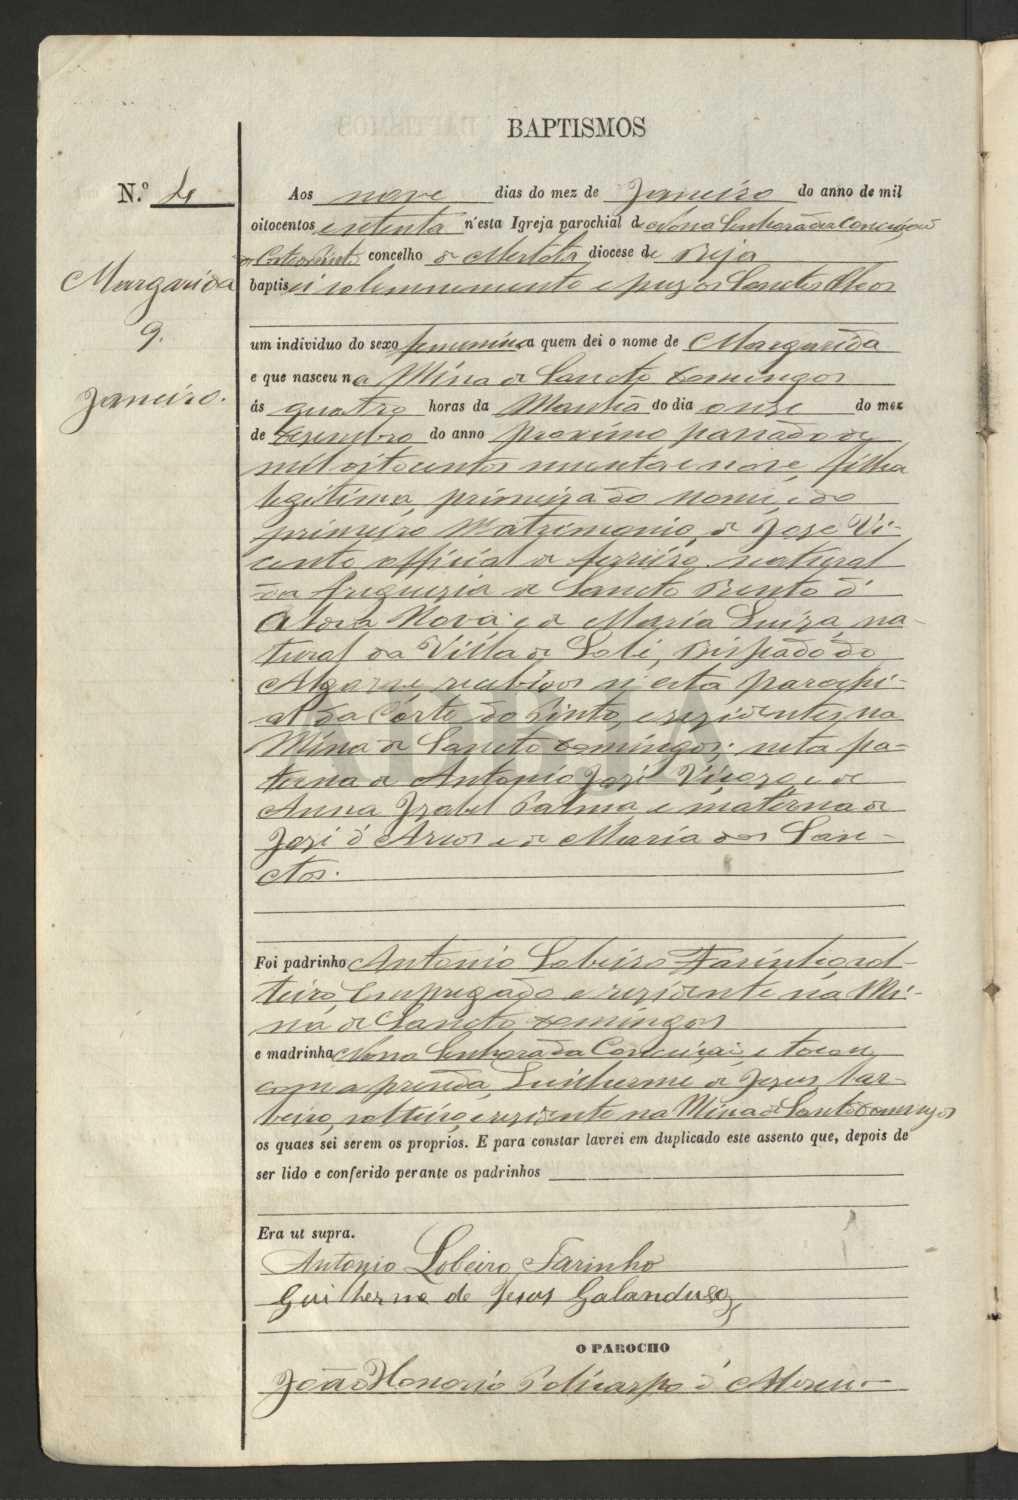 BAPTISMOS
N.º 4
Aos nove dias do mez de Janeiro do anno de mil
oitocentos e setenta n'esta Igreja parochial de Nossa Senhora da Conceição
concelho de Mertola diocese de Beja
Margarida
baptisei solemnemente e puz os Sanctos Oleos
9.
um individuo do sexo femenino a quem dei o nome de Margarida
e que nasceu na Mina de Sancto Domingos
Janeiro.
ás quatro horas da Manhã do dia onze do mez
de Dezembro do anno proximo passado de
mil oitocentos secenta e nove, filha
legitima, primeira do nome, e do
primeiro Matrimonio, de José Vi-
cente official de ferreiro natural
da freguezia de Sancto Bento d'
Aldea Nova e de Maria Luiza, na-
tural da Villa de Lolé, Bispado do
Algarve, recebidos n'esta parochi-
al da Córte do Pinto, e rezidentes na
Mina de Sancto Domingos; neta pa-
terna de Antonio José e de
Anna Izabel Palma e materna de
José d'Arcos e de Maria dos San-
ctos.
Foi padrinho Antonio Lobeiro Farinho sol-
teiro, Empregado e rezidente na Mi-
na de Sancto Domingos
e madrinha Nossa Senhora da Conceição, e tocou
com a prenda, Guilherme de Jesus, bar-
beiro, solteiro, e rezidente na Mina de Sancto Domingos
os quaes sei serem os proprios. E para constar lavrei em duplicado este assento que, depois de
ser lido e conferido perante os padrinhos
Era ut supra.
Antonio Lobeiro Farinho
Guilherme de Jesus
O PAROCHO
João Honorio Policarpo d'